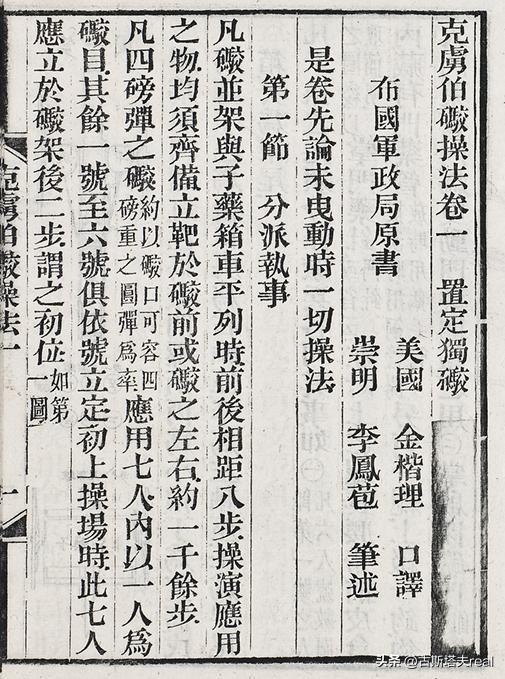 克虜伯礮操法卷一 置定獨礮
布國軍政局原書
美國 金楷理 口譯
崇明 李鳳苞 筆述
是卷先論未曳動時一切操法
第一節 分派執事
凡礮並架與子藥箱車平列時前後相距八步操演應用
之物均須齊備立靶於礮前或礮之左右約一千餘步
凡四磅彈之礮約以礮口可容四磅重之圓彈爲率應用七人內以一人爲
礮目其餘一號至六號俱依號立定初上操場時此七人
應立於礮架後二步謂之初位如第一圖
克虜伯礮操法一 一
头条 @古斯塔夫real